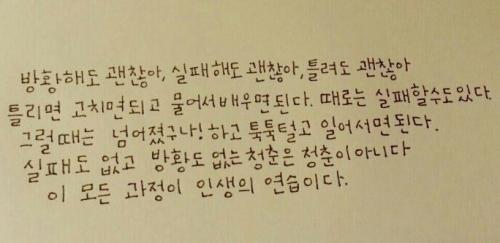 방황해도 괜찮아, 실패해도 괜찮아, 틀려도 괜찮아
틀리면 고치면되고 물어서배우면된다. 때로는 실패할수도있다.
그럴때는 넘어졌구나! 하고 툭툭털고 일어서면된다.
실패도 없고 방황도 없는청춘은 청춘이아니다
이 모든 과정이 인생의 연습이다.